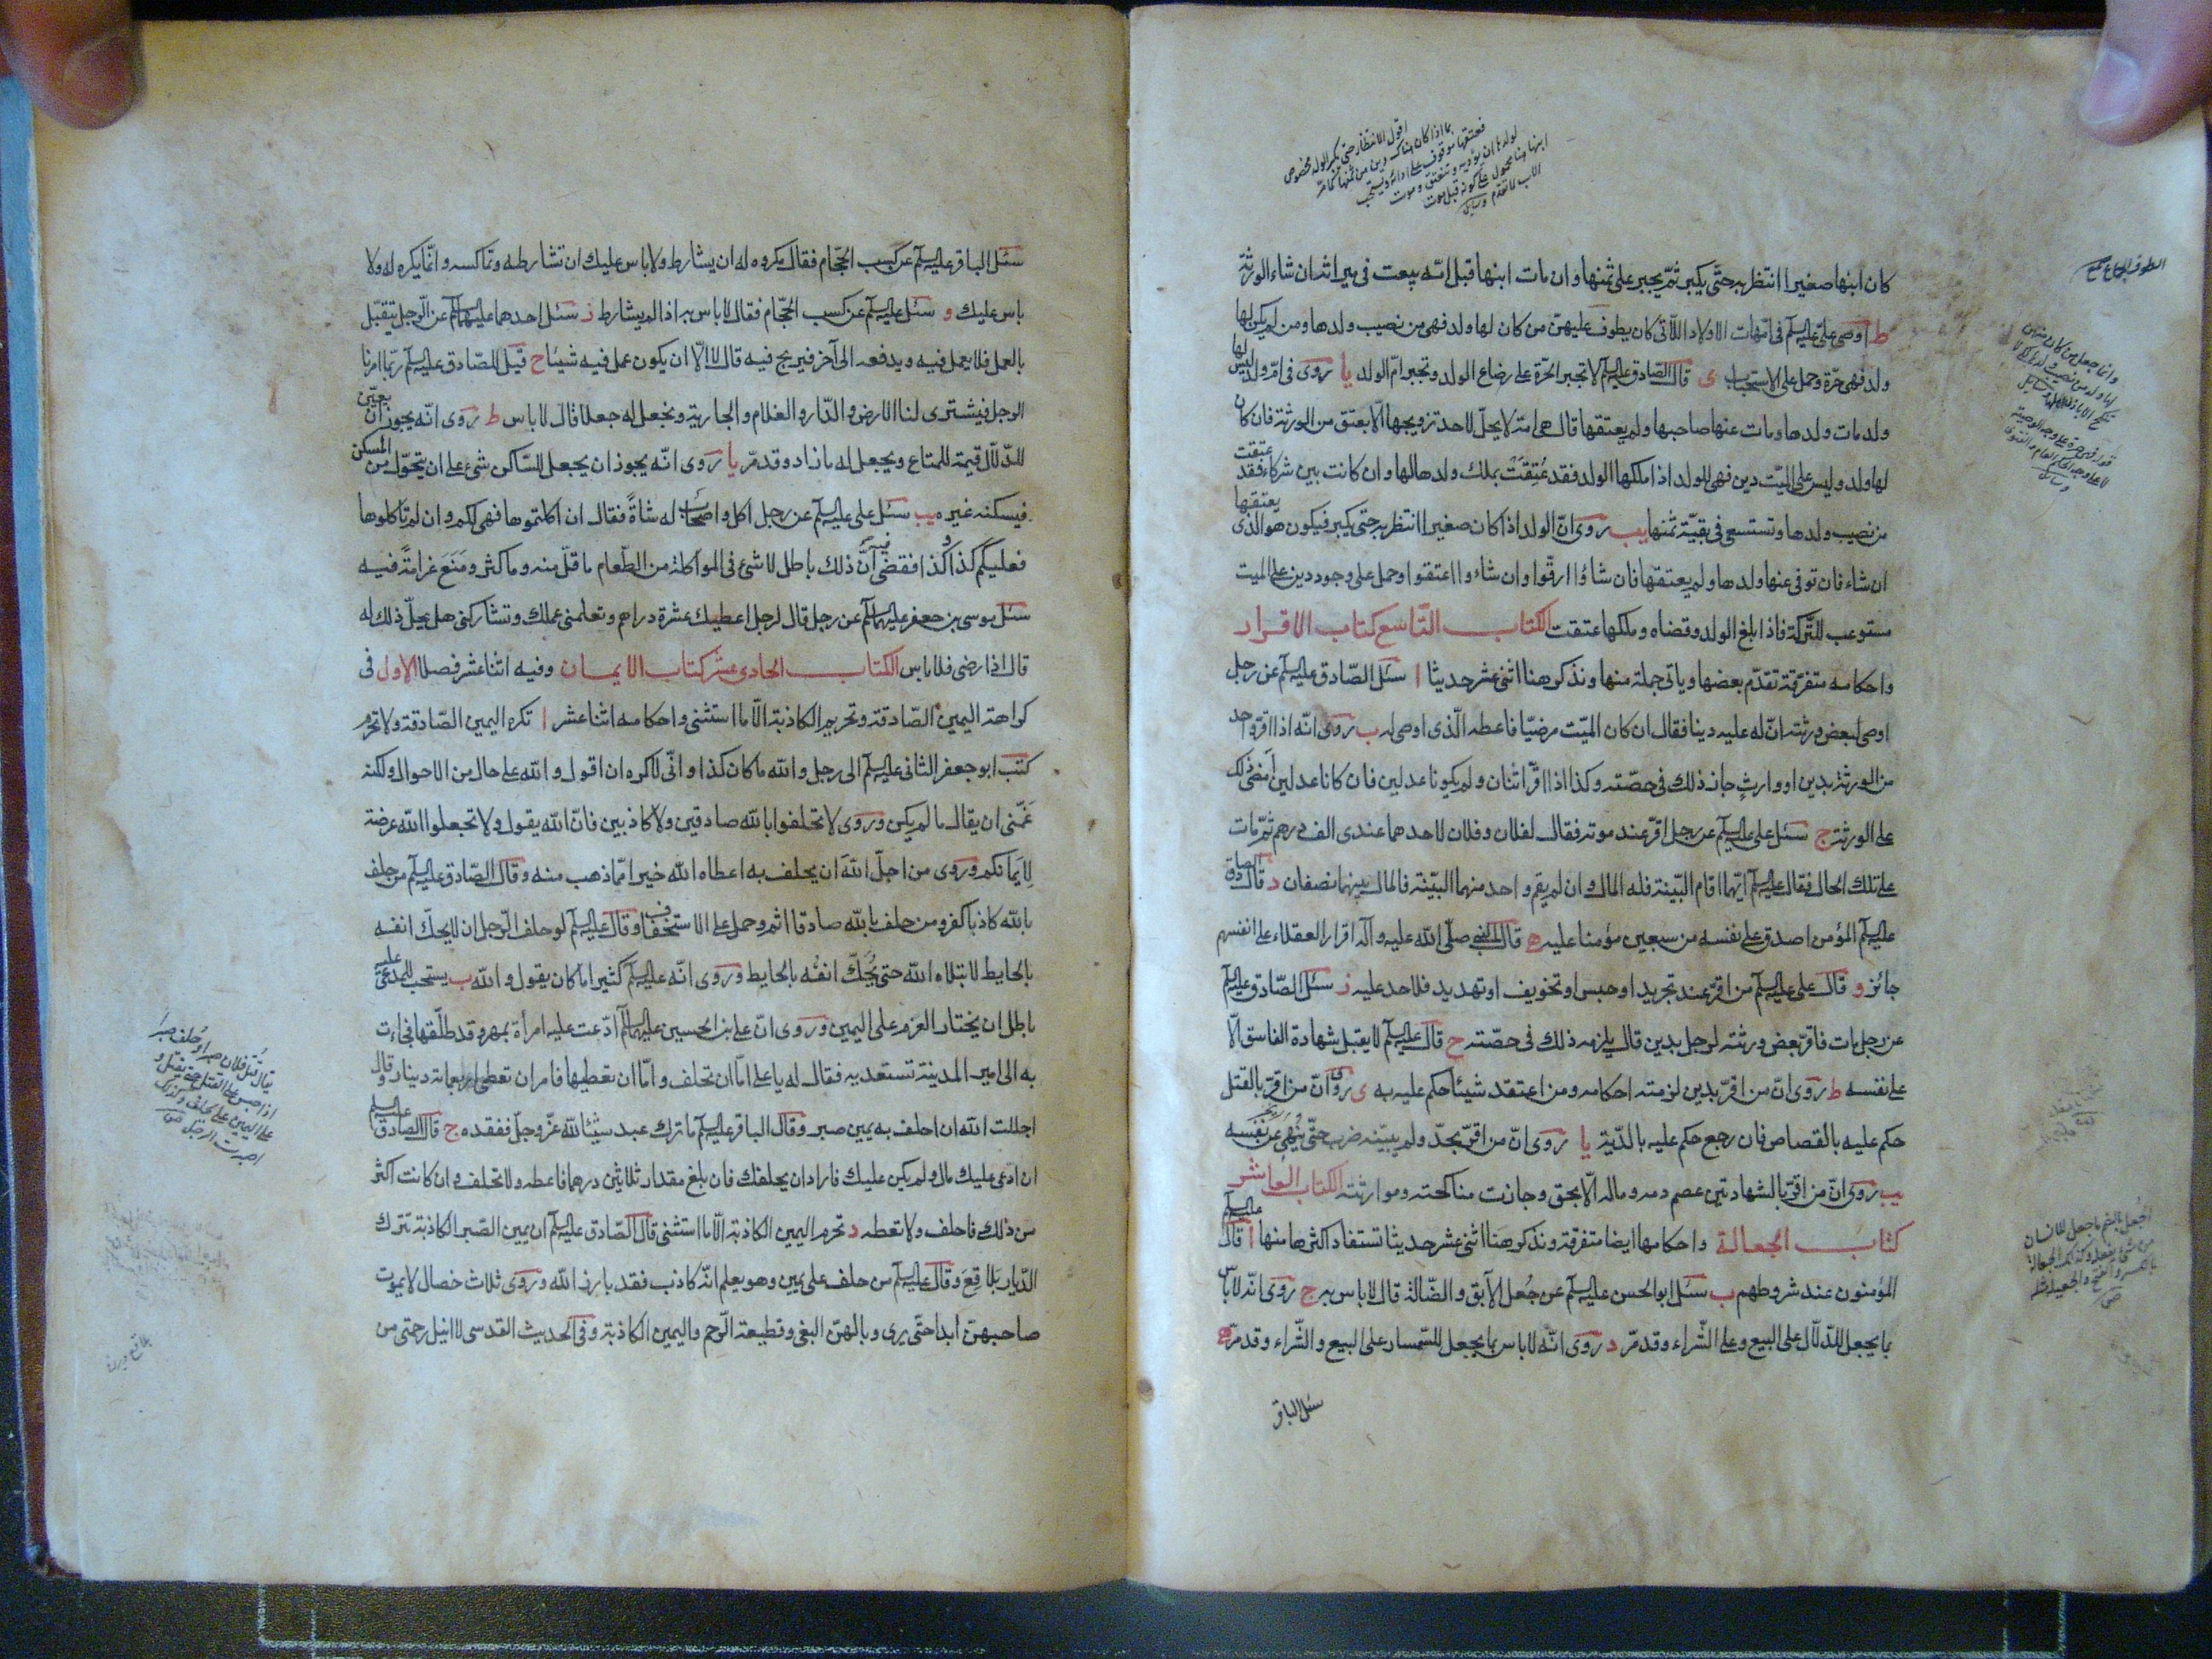 كان ابنها صغيرا انتظر به حتّى يكبر ثمّ يجبر على ثمنها وان مات ابنها قبل امّه بيعت فى ميراثه ان شاء الورثة
ط اوصى علىّ عليه السلم فى امّهات الاولاد اللّاتى كان يطوف عليهنّ من كان لها ولد فهى من نصيب ولدها ومن لم يكن لها
ولد فهى حرّة وحمل على الاستحباب ى قال الصّادق عليه السلم لا تجبر الحرّة على رضاع الولد وتجبر امّ الولد يا روى فى امّ ولد ليس لها
ولد مات ولدها ومات عنها صاحبها ولم يعتقها قال هى امة لا يحلّ لاحد تزويجها الّا بعتق من الورثة فان كان
لها ولد وليس على الميّت دين فهى للولد اذا ملكها الولد فقد عُتِقَتْ بملك ولدها لها وان كانت بين شركاء فقد عتقت
من نصيب ولدها وتستسعى فى بقيّة ثمنها يب روى انّ الولد اذا كان صغيرا انتظر به حتى يكبر فيكون هو الذى يعتقها
ان شاء فان توفى عنها ولدها ولم يعتقها فان شاؤا ارقّوا وان شاءوا اعتقوا وحمل على وجود دين على الميت
مستوعب للتّركة فاذا بلغ الولد وقضاه وملكها عتقت الكتاب التّاسع كتاب الاقرار
واحكامه متفرّقة تقدّم بعضها وياتى جملة منها ونذكر هنا اثنى عشر حديثا ا سئل الصّادق عليه السلم عن رجل
اوصى لبعض ورثته انّ له عليه دينا فقال ان كان الميّت مرضيّا فاعطه الّذى اوصى له ب روى انّه اذا اقرّ واحد
من الورثة بدين او وارثٍ جاز ذلك فى حصّته وكذا اذا اقرّ اثنان ولم يكونا عدلين فان كانا عدلين اُمضى ذلك
على الورثة ج سئل على عليه السلم عن رجل اقرّ عند موته فقال لفلان وفلان لاحدهما عندى الف درهم ثمّ مات
على تلك الحال فقال عليه السلم ايّهما اقام البيّنة فله المال وان لم يقم واحد منهما البيّنة فالمال بينهما نصفان د قال الصادق
عليه السلم المؤمن اصدق على نفسه من سبعين مؤمنا عليه ه قال النبى صلّى الله عليه وآله اقرار العقلاء على انفسهم
جائز و قال على عليه السلم من اقرّ عند تجريد او حبس او تخويف او تهديد فلا حد عليه ز سئل الصّادق عليه السلم
عن رجل مات فاقرّ بعض ورثته لرجل بدين قال يلزمه ذلك فى حصّته ح قال عليه السلم لا يقبل شهادة الفاسق الّا
على نفسه ط روى انّ من اقرّ بدين لزمته احكامه ومن اعتقد شيئا حكم عليه به ى روى انّ من اقرّ بالقتل
حكم عليه بالقصاص فان رجع حكم عليه بالدّية يا روى انّ من اقرّ بحدّ ولم يبيّنه ضرب حتّى يَنْهَى عن نفسه
يب روى انّ من اقرّ بالشهادتين عصم دمه وماله الّا بحق وجازت مناكحته وموارثته الكتاب العاشر
كتاب الجعالة واحكامها ايضا متفرّقة ونذكر هنا اثنى عشر حديثا تستفاد اكثرها منها ا قال عليه السلم
المؤمنون عند شروطهم ب سئل ابو الحسن عليه السلم عن جُعل الآبق والضّالة قال لا باس به ج روى انّه لا باس
بما يجعل للدّلّال على البيع وعلى الشّراء وقد مرّ د روى انّه لا باس بما يجعل للسّمسار على البيع والشّراء وقد مرّ ه
سئل الباقر
سئل الباقر عليه السلم عن كسب الحجّام فقال مكروه له ان يشارط ولا باس عليك ان تشارطه وتماكسه وانّما يكره له ولا
باس عليك و سئل عليه السلم عن كسب الحجّام فقال لا باس به اذا لم يشارط ز سئل احدهما عليهما السلم عن الرّجل يتقبّل
بالعمل فلا يعمل فيه ويدفعه الى آخر فيربح فيه قال لا الّا ان يكون عمل فيه شيئا ح قيل للصّادق عليه السلم ربّما امرنا
الرجل فيشترى لنا الارض والدّار والغلام والجارية ونجعل له جعلا قال لا باس ط روى انّه يجوز ان يعيّن
للدّلّال قيمة للمتاع ويجعل له ما زاد وقد مرّ يا روى انّه يجوز ان يجعل للسّاكن شىء على ان يتحوّل من المسكن
فيسكنه غيره يب سئل على عليه السلم عن رجل اكل واصحاب له شاةً فقال ان اكلتموها فهى لكم وان لم تاكلوها
فعليكم كذا وكذا فقضى فيه انّ ذلك باطل لا شئ فى المواكلة من الطّعام ما قلّ منه وما كثر ومَنَعَ غرامةً فيه
سئل موسى بن جعفر عليهما السلم عن رجل قال لرجل اعطيك عشرة دراهم وتعلمنى عملك وتشاركنى هل يحلّ ذلك له
قال اذا رضى فلا باس الكتاب الحادى عشر كتاب الايمان وفيه اثنا عشر فصلا الاول فى
كراهة اليمين الصّادقة وتحريم الكاذبة الّا ما استثنى واحكامه اثنا عشر ا تكره اليمين الصّادقة ولا تحرم
كتب ابو جعفر الثانى عليه السلم الى رجل والله ما كان كذا وانّى لاكره ان اقول والله على حال من الاحوال ولكنه
غمّنى ان يقال ما لم يكن وروى لا تحلفوا بالله صادقين ولا كاذبين فانّ الله يقول ولا تجعلوا الله عرضة
لِاَيمانكم وروى من اجلّ اللهَ ان يحلف به اعطاه الله خيرا ممّا ذهب منه وقال الصّادق عليه السلم من حلف
بالله كاذبا كفر ومن حلف بالله صادقا اثم وحمل على الاستخفاف وقال عليه السلم لو حلف الرّجل ان لا يحكّ انفه
بالحايط لابتلاه الله حتى يَحُكّ انفُه بالحايط وروى انّه عليه السلم كثيرا ما كان يقول والله ب يستحب للمدعى عليه
باطل ان يختار الغرم على اليمين وروى انّ على بن الحسين عليهما السلم ادّعت عليه امراة بمهر وقد طلّقها فجاءت
به الى امير المدينة تستعديه فقال له يا على امّا ان تحلف وامّا ان تعطيها فامر ان تعطى اربعمائة دينار وقال
اجللت الله ان احلف به يمين صبر وقال الباقر عليه السلم ما ترك عبد شيئا لله عزّ وجلّ ففقده ج قال الصادق عليه السلم
ان ادّعى عليك مال ولم يكن عليك فاراد ان يحلفك فان بلغ مقدار ثلاثين درهما فاعطه ولا تحلف وان كانت اكثر
من ذلك فاحلف ولا تعطه د تحرم اليمين الكاذبة الّا ما استثنى قال الصّادق عليه السلم ان يمين الصّبر الكاذبة تترك
الدّيار بَلاقِعَ وقال عليه السلم من حلف على يمين وهو يعلم انّه كاذب فقد بارز الله وروى ثلاث خصال لا يموت
صاحبهنّ ابدا حتّى يرى وبالهنّ البغى وقطيعة الرّحم واليمين الكاذبة وفى الحديث القدسى لا انيل رحمتى من